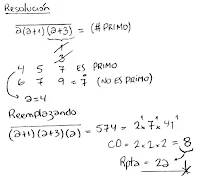 Resolución
a(a+1)(a+3) = (# PRIMO)
1
3
4 5 7 ES PRIMO
6 7 9 = 7 (NO ES PRIMO)
a=4
Reemplazando
(a+1)(a+3)(a) = 574 = 2¹ * 7¹ * 41¹
CD = 2 x 2 x 2 = 8
Rpta = 2a